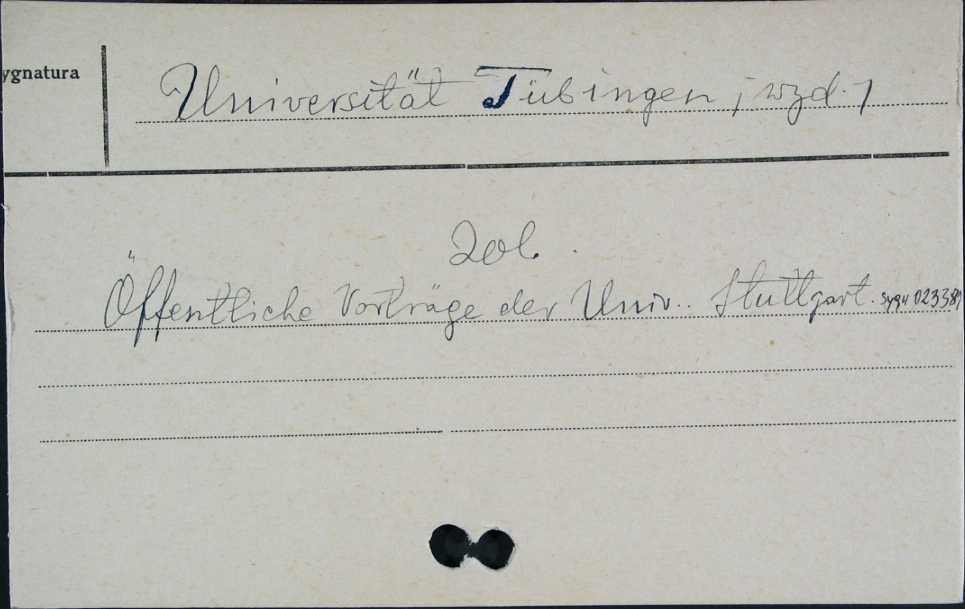 ygnatura
Universität Tübingen; wyd.
Zob.
Öffentliche Vorträge der Univ.. Stuttgart. sygn 023381